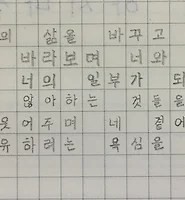 의 삶을 바꾸고
바라보며 너와
너의 일부가 되
않아하는 것들을
웃어주며 네 곁에
유하려는 욕심을